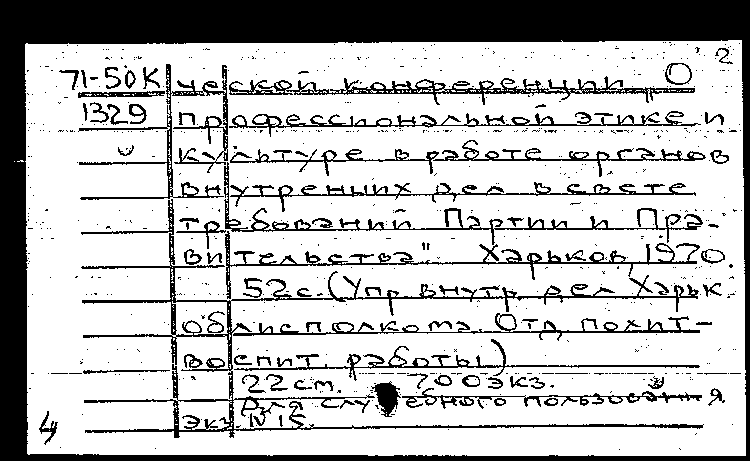 2
71-50К ческой конференции „О
1329 профессиональной этике и
культуре в работе органов
внутренних дел в свете
требований Партии и Пра-
вительства". Харьков, 1970.
52с. (Упр. внутр. дел Харьк.
облисполкома. Отд. полит-
воспит. работы)
22см. 700экз.
Для служебного пользования
Экз. N 15.